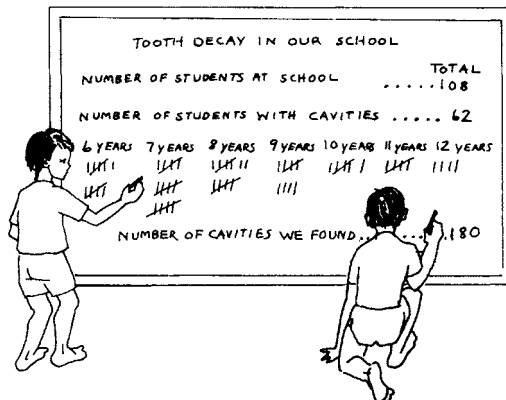 TOOTH DECAY IN OUR SCHOOL
TOTAL
NUMBER OF STUDENTS AT SCHOOL .....108
NUMBER OF STUDENTS WITH CAVITIES ..... 62
6 YEARS 7 YEARS 8 YEARS 9 YEARS 10 YEARS 11 YEARS 12 YEARS
NUMBER OF CAVITIES WE FOUND..........180